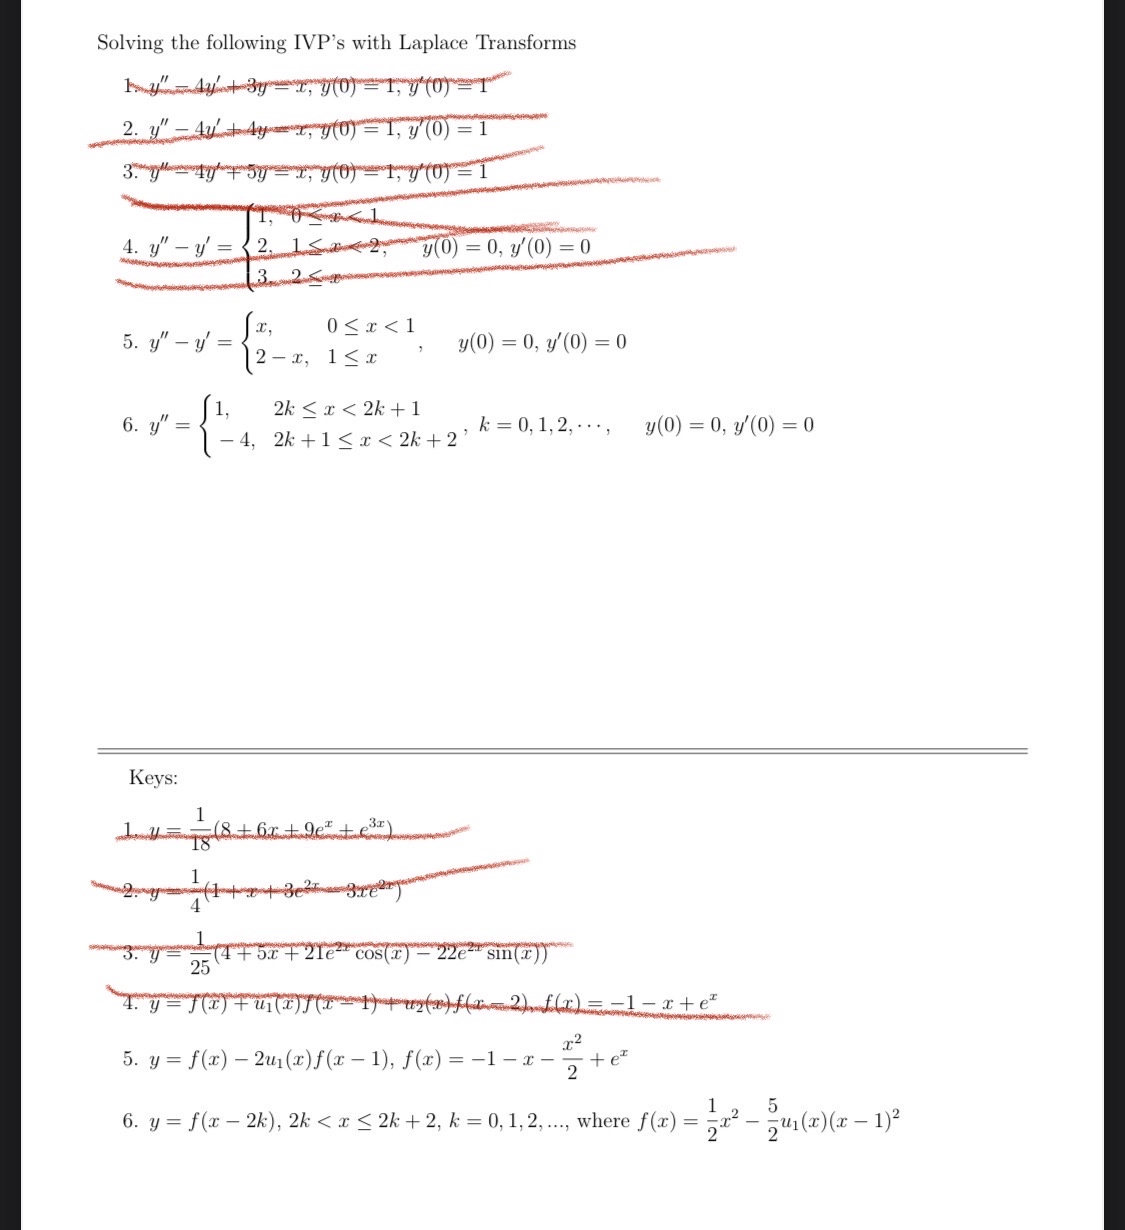 Solving the following IVP's with Laplace Transforms
1. y′′ − 4y′ + 3y = x, y(0) = 1, y′(0) = 1
2. y′′ − 4y′ + 4y = x, y(0) = 1, y′(0) = 1
3. y′′ − 4y′ + 5y = x, y(0) = 1, y′(0) = 1
4. y′′ − y′ = { 1, 0 ≤ x < 1
2, 1 ≤ x < 2, y(0) = 0, y′(0) = 0
3, 2 ≤ x
5. y′′ − y′ = { x, 0 ≤ x < 1
2 − x, 1 ≤ x , y(0) = 0, y′(0) = 0
6. y′′ = { 1, 2k ≤ x < 2k + 1
− 4, 2k + 1 ≤ x < 2k + 2 , k = 0, 1, 2, ⋯, y(0) = 0, y′(0) = 0
Keys:
1. y = 1/18 (8 + 6x + 9e^x + e^{3x})
2. y = 1/4 (1 + x + 3e^{2x} − 3xe^{2x})
3. y = 1/25 (4 + 5x + 21e^{2x} cos(x) − 22e^{2x} sin(x))
4. y = f(x) + u₁(x)f(x − 1) + u₂(x)f(x − 2), f(x) = −1 − x + e^x
5. y = f(x) − 2u₁(x)f(x − 1), f(x) = −1 − x − x²/2 + e^x
6. y = f(x − 2k), 2k < x ≤ 2k + 2, k = 0, 1, 2, ..., where f(x) = 1/2 x² − 5/2 u₁(x)(x − 1)²